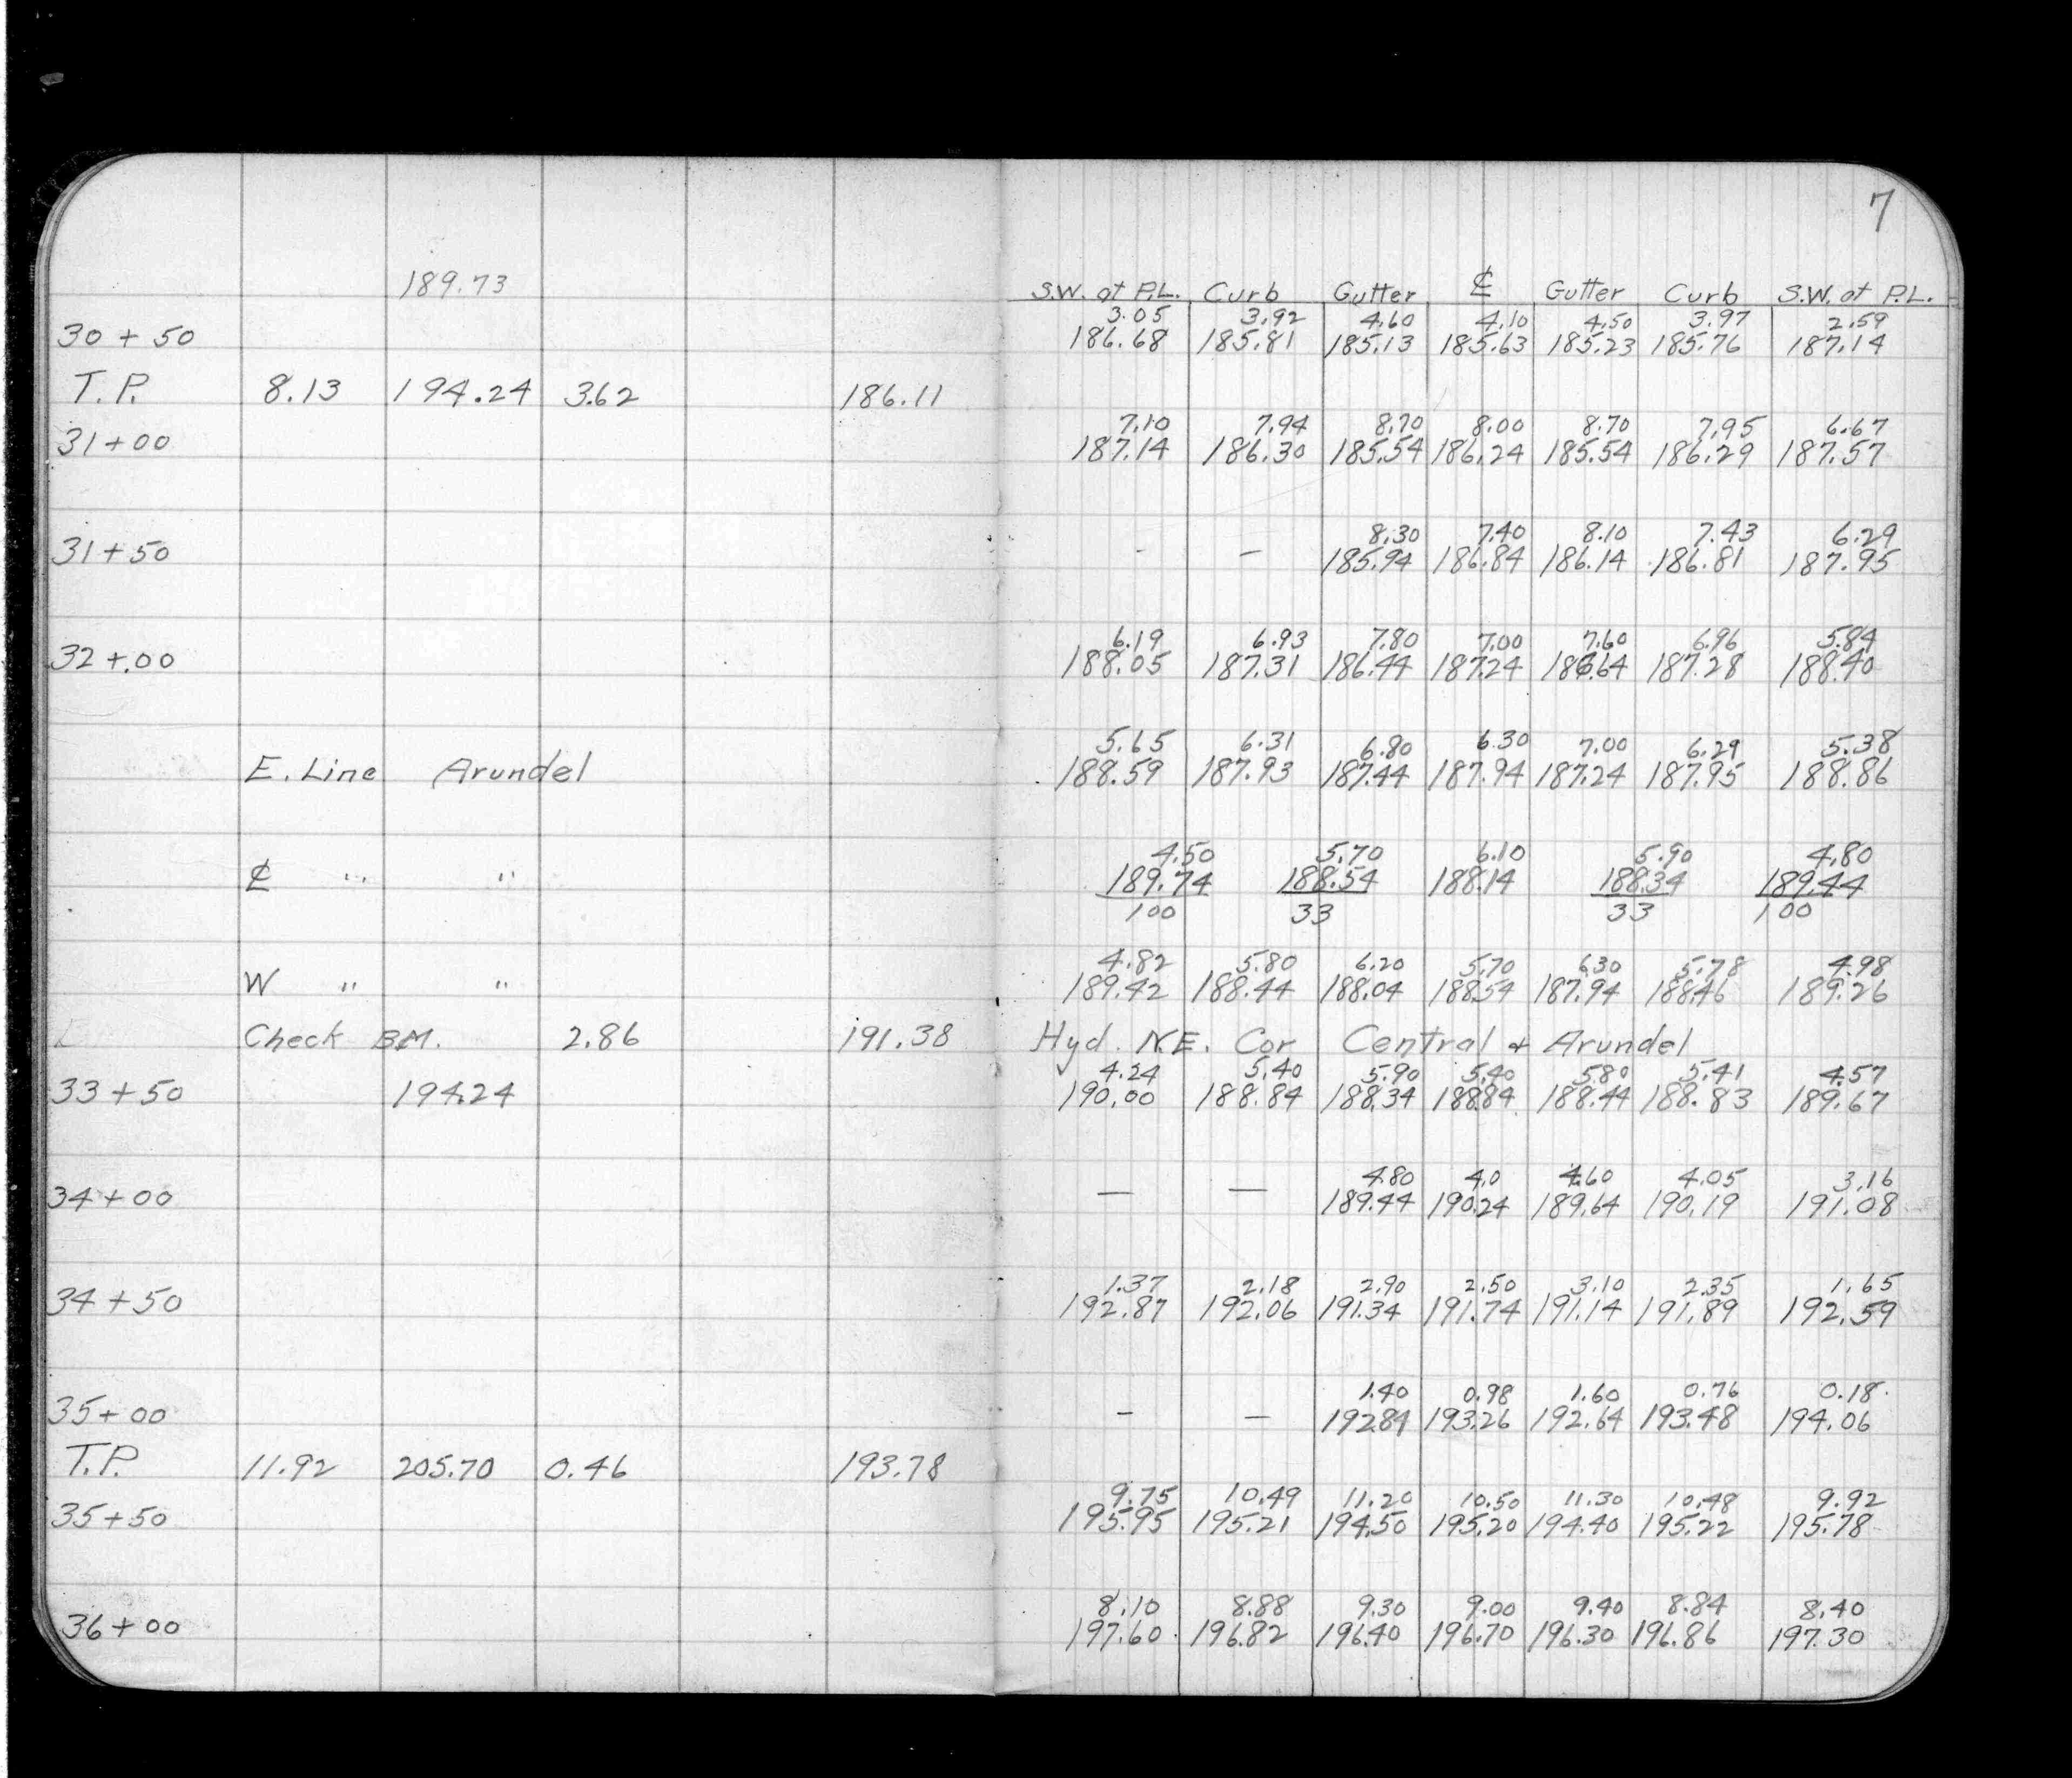 7
189.73 S.W. at P.L. Curb Gutter ℄ Gutter Curb S.W. at P.L.
3.05 3.92 4.60 4.10 4.50 3.97 2.59
30+50 186.68 185.81 185.13 185.63 185.23 185.76 187.14
T.P. 8.13 194.24 3.62 186.11
7.10 7.94 8.70 8.00 8.70 7.95 6.67
31+00 187.14 186.30 185.54 186.24 185.54 186.29 187.57
8.30 7.40 8.10 7.43 6.29
31+50 - — 185.94 186.84 186.14 186.81 187.95
6.19 6.93 7.80 7.00 7.60 6.96 5.84
32+00 188.05 187.31 186.44 187.24 186.64 187.28 188.40
5.65 6.31 6.80 6.30 7.00 6.29 5.38
E. Line Arundel 188.59 187.93 187.44 187.94 187.24 187.95 188.86
4.50 5.70 6.10 5.90 4.80
℄ " " 189.74 188.54 188.14 188.34 189.44
100 33 33 100
4.82 5.80 6.20 5.70 6.30 5.78 4.98
W " " 189.42 188.44 188.04 188.54 187.94 188.46 189.26
Check B.M. 2.86 191.38 Hyd. N.E. Cor Central & Arundel
4.24 5.40 5.90 5.40 5.80 5.41 4.57
33+50 194.24 190.00 188.84 188.34 188.84 188.44 188.83 189.67
4.80 4.0 4.60 4.05 3.16
34+00 — — 189.44 190.24 189.64 190.19 191.08
1.37 2.18 2.90 2.50 3.10 2.35 1.65
34+50 192.87 192.06 191.34 191.74 191.14 191.89 192.59
1.40 0.98 1.60 0.76 0.18
35+00 - — 192.84 193.26 192.64 193.48 194.06
T.P. 11.92 205.70 0.46 193.78
9.75 10.49 11.20 10.50 11.30 10.48 9.92
35+50 195.95 195.21 194.50 195.20 194.40 195.22 195.78
8.10 8.88 9.30 9.00 9.40 8.84 8.40
36+00 197.60 196.82 196.40 196.70 196.30 196.86 197.30